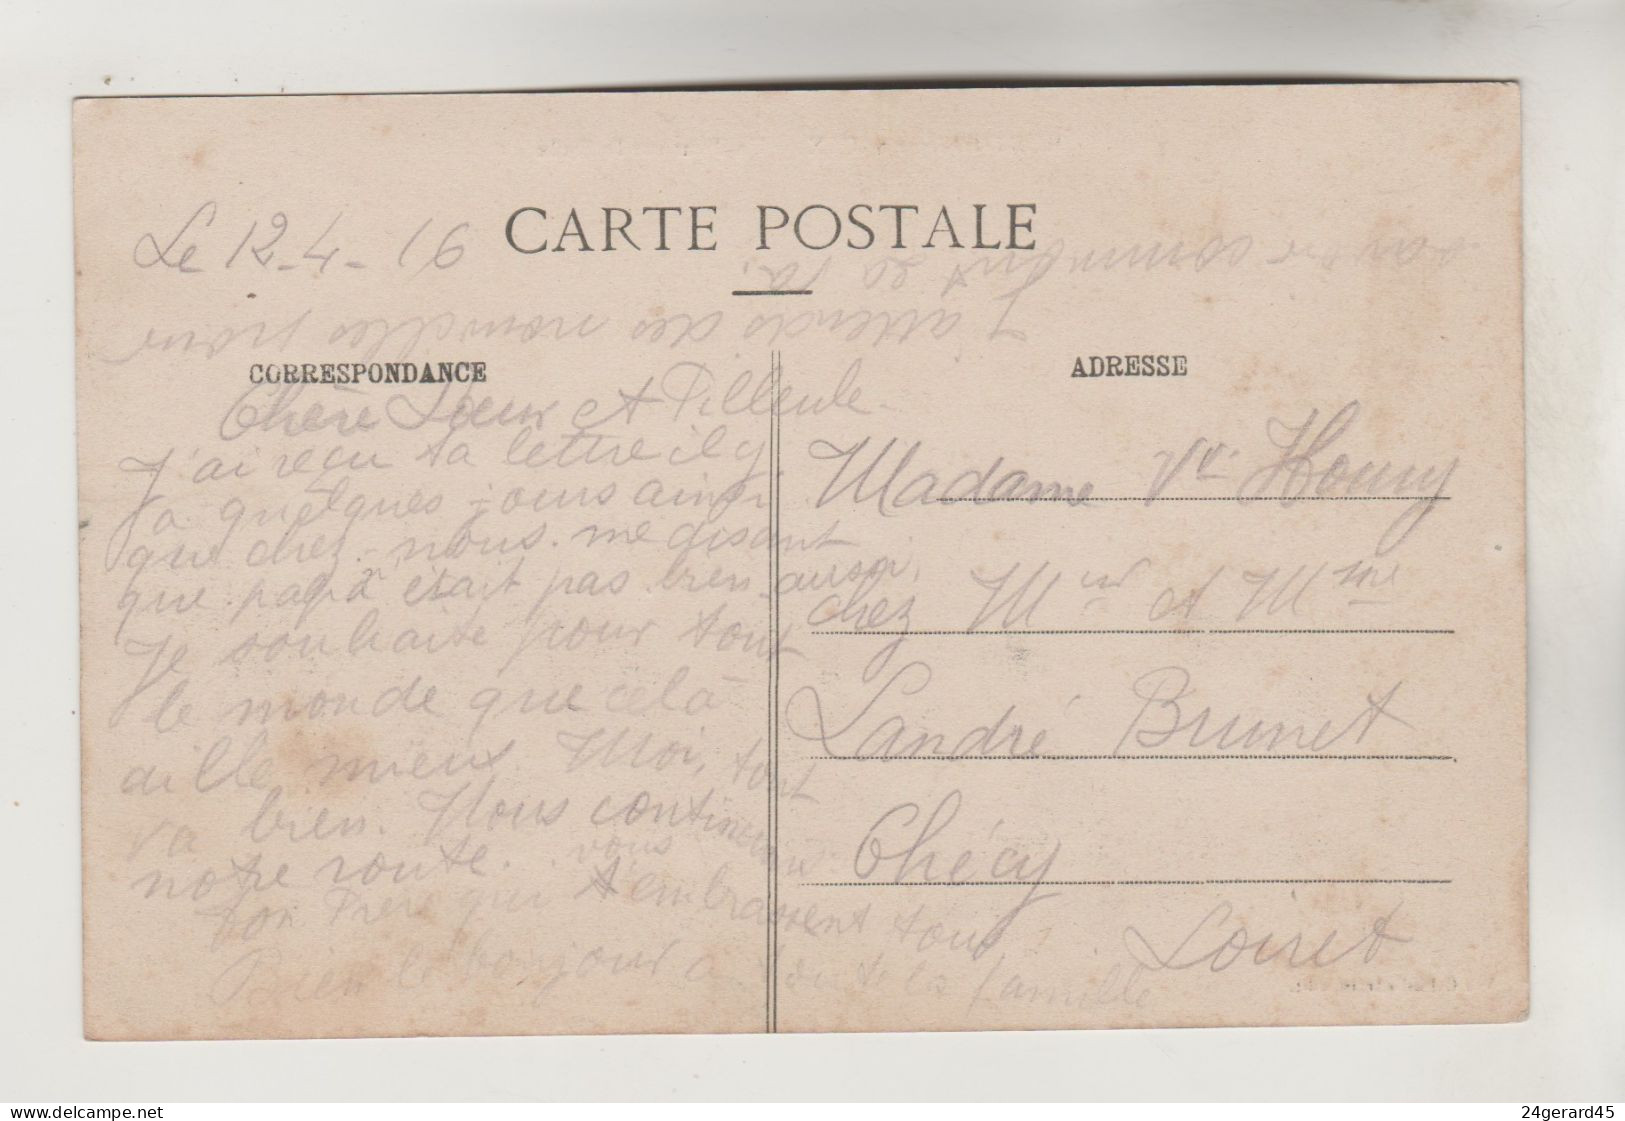 Le 12-4-16
CARTE POSTALE
J'attends des nouvelles pour
savoir comment ça va.
CORRESPONDANCE
Chère Sœur et Filleule.
J'ai reçu ta lettre il y
a quelques jours ainsi
que chez-nous. me disant
que papa n'était pas bien aussi,
Je souhaite pour tout
le monde que celà
aille mieux. Moi, tout
va bien. Nous continuons
notre route.
Ton Frère qui vous t'embrassent tous
Bien le bonjour à toute la famille
ADRESSE
Madame Vve Houry
chez Mur et Mme
Landré Brunet
Chécy
Loiret
delcampe.net
24gerard45